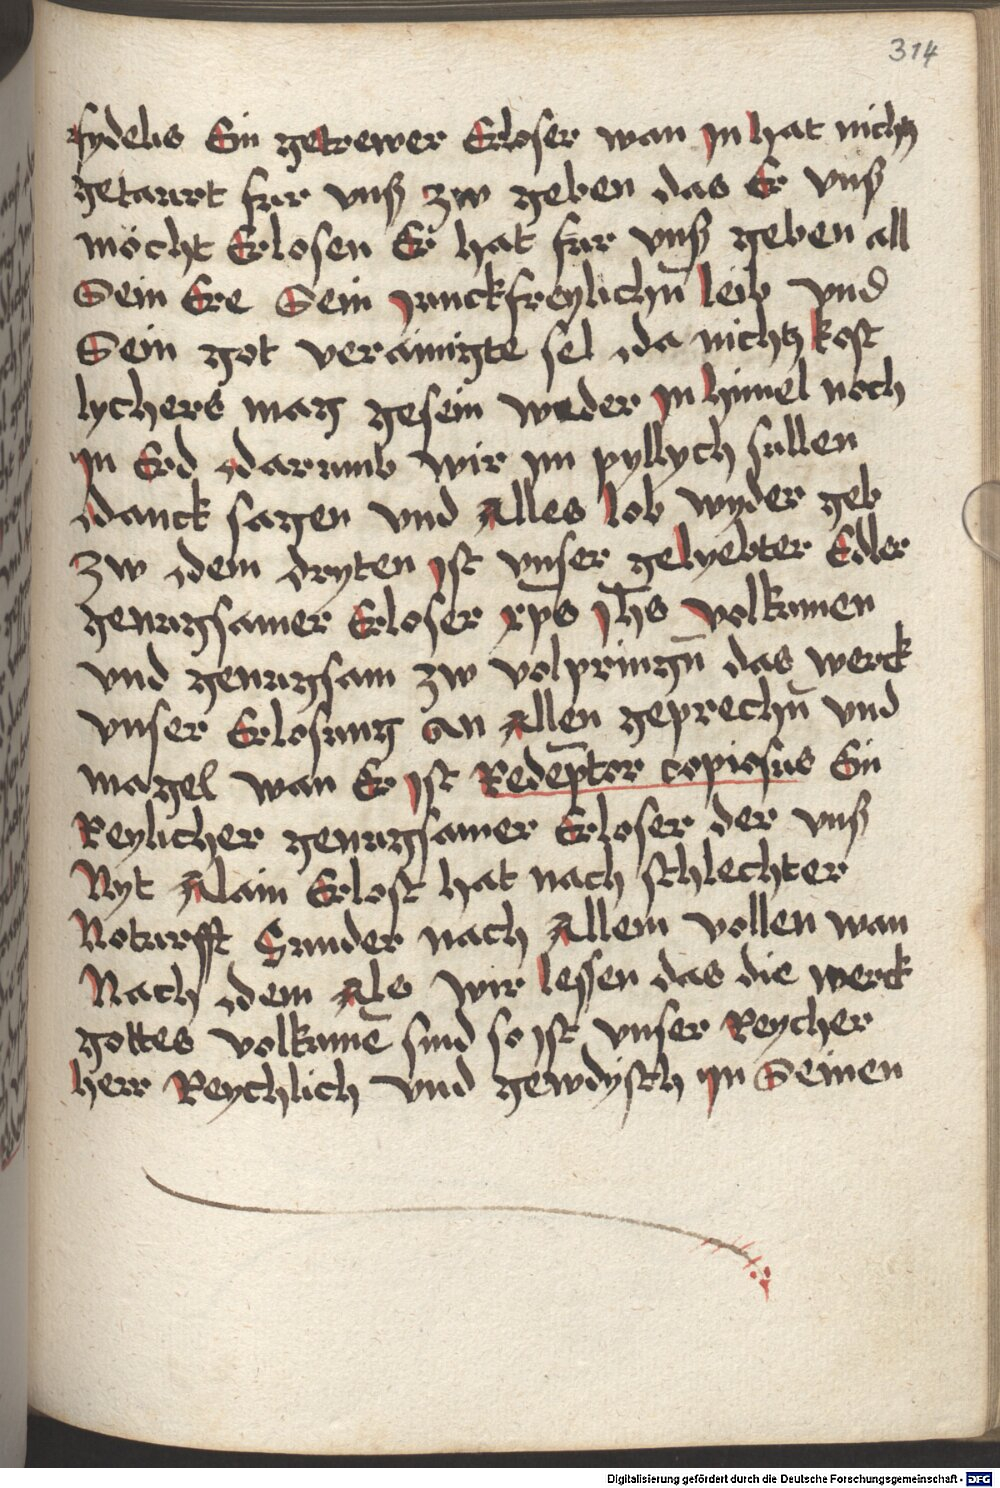 314
fydelis Ein getrewer Erloser wan jn hat nichtz
getaurt fur vnß zw geben das Er vnß
möcht Erlosen Er hat fur vnß geben all
Sein Ere Sein junckfreylichn̄ leib vnd
Sein got verainigte sel da nichtz kost
lychers mag gesein weder jn himel noch
jn Erd darumb wir im pyllych sullen
danck sagen vnd Alles lob wyder geb
zw dem dryten jst vnser gelyebter Edler
genugsamer Erloser xp̄s jh̄s volkumen
vnd genugsam zw volpringn̄ das werck
vnser Erlosung an Allen geprechn̄ vnd
magel wan Er jst Redēptor copiosus Ein
Reylicher genugsamer Erloser der vnß
Nyt Alain Erlost hat nach schlechter
Noturfft Sunder nach Allem vollen wan
Nach dem Als wir lessen das die werck
gottes volkumē sind so jst vnser Reycher
herr Reychlich vnd gewdysch jn Seinen
Digitalisierung gefördert durch die Deutsche Forschungsgemeinschaft - DFG